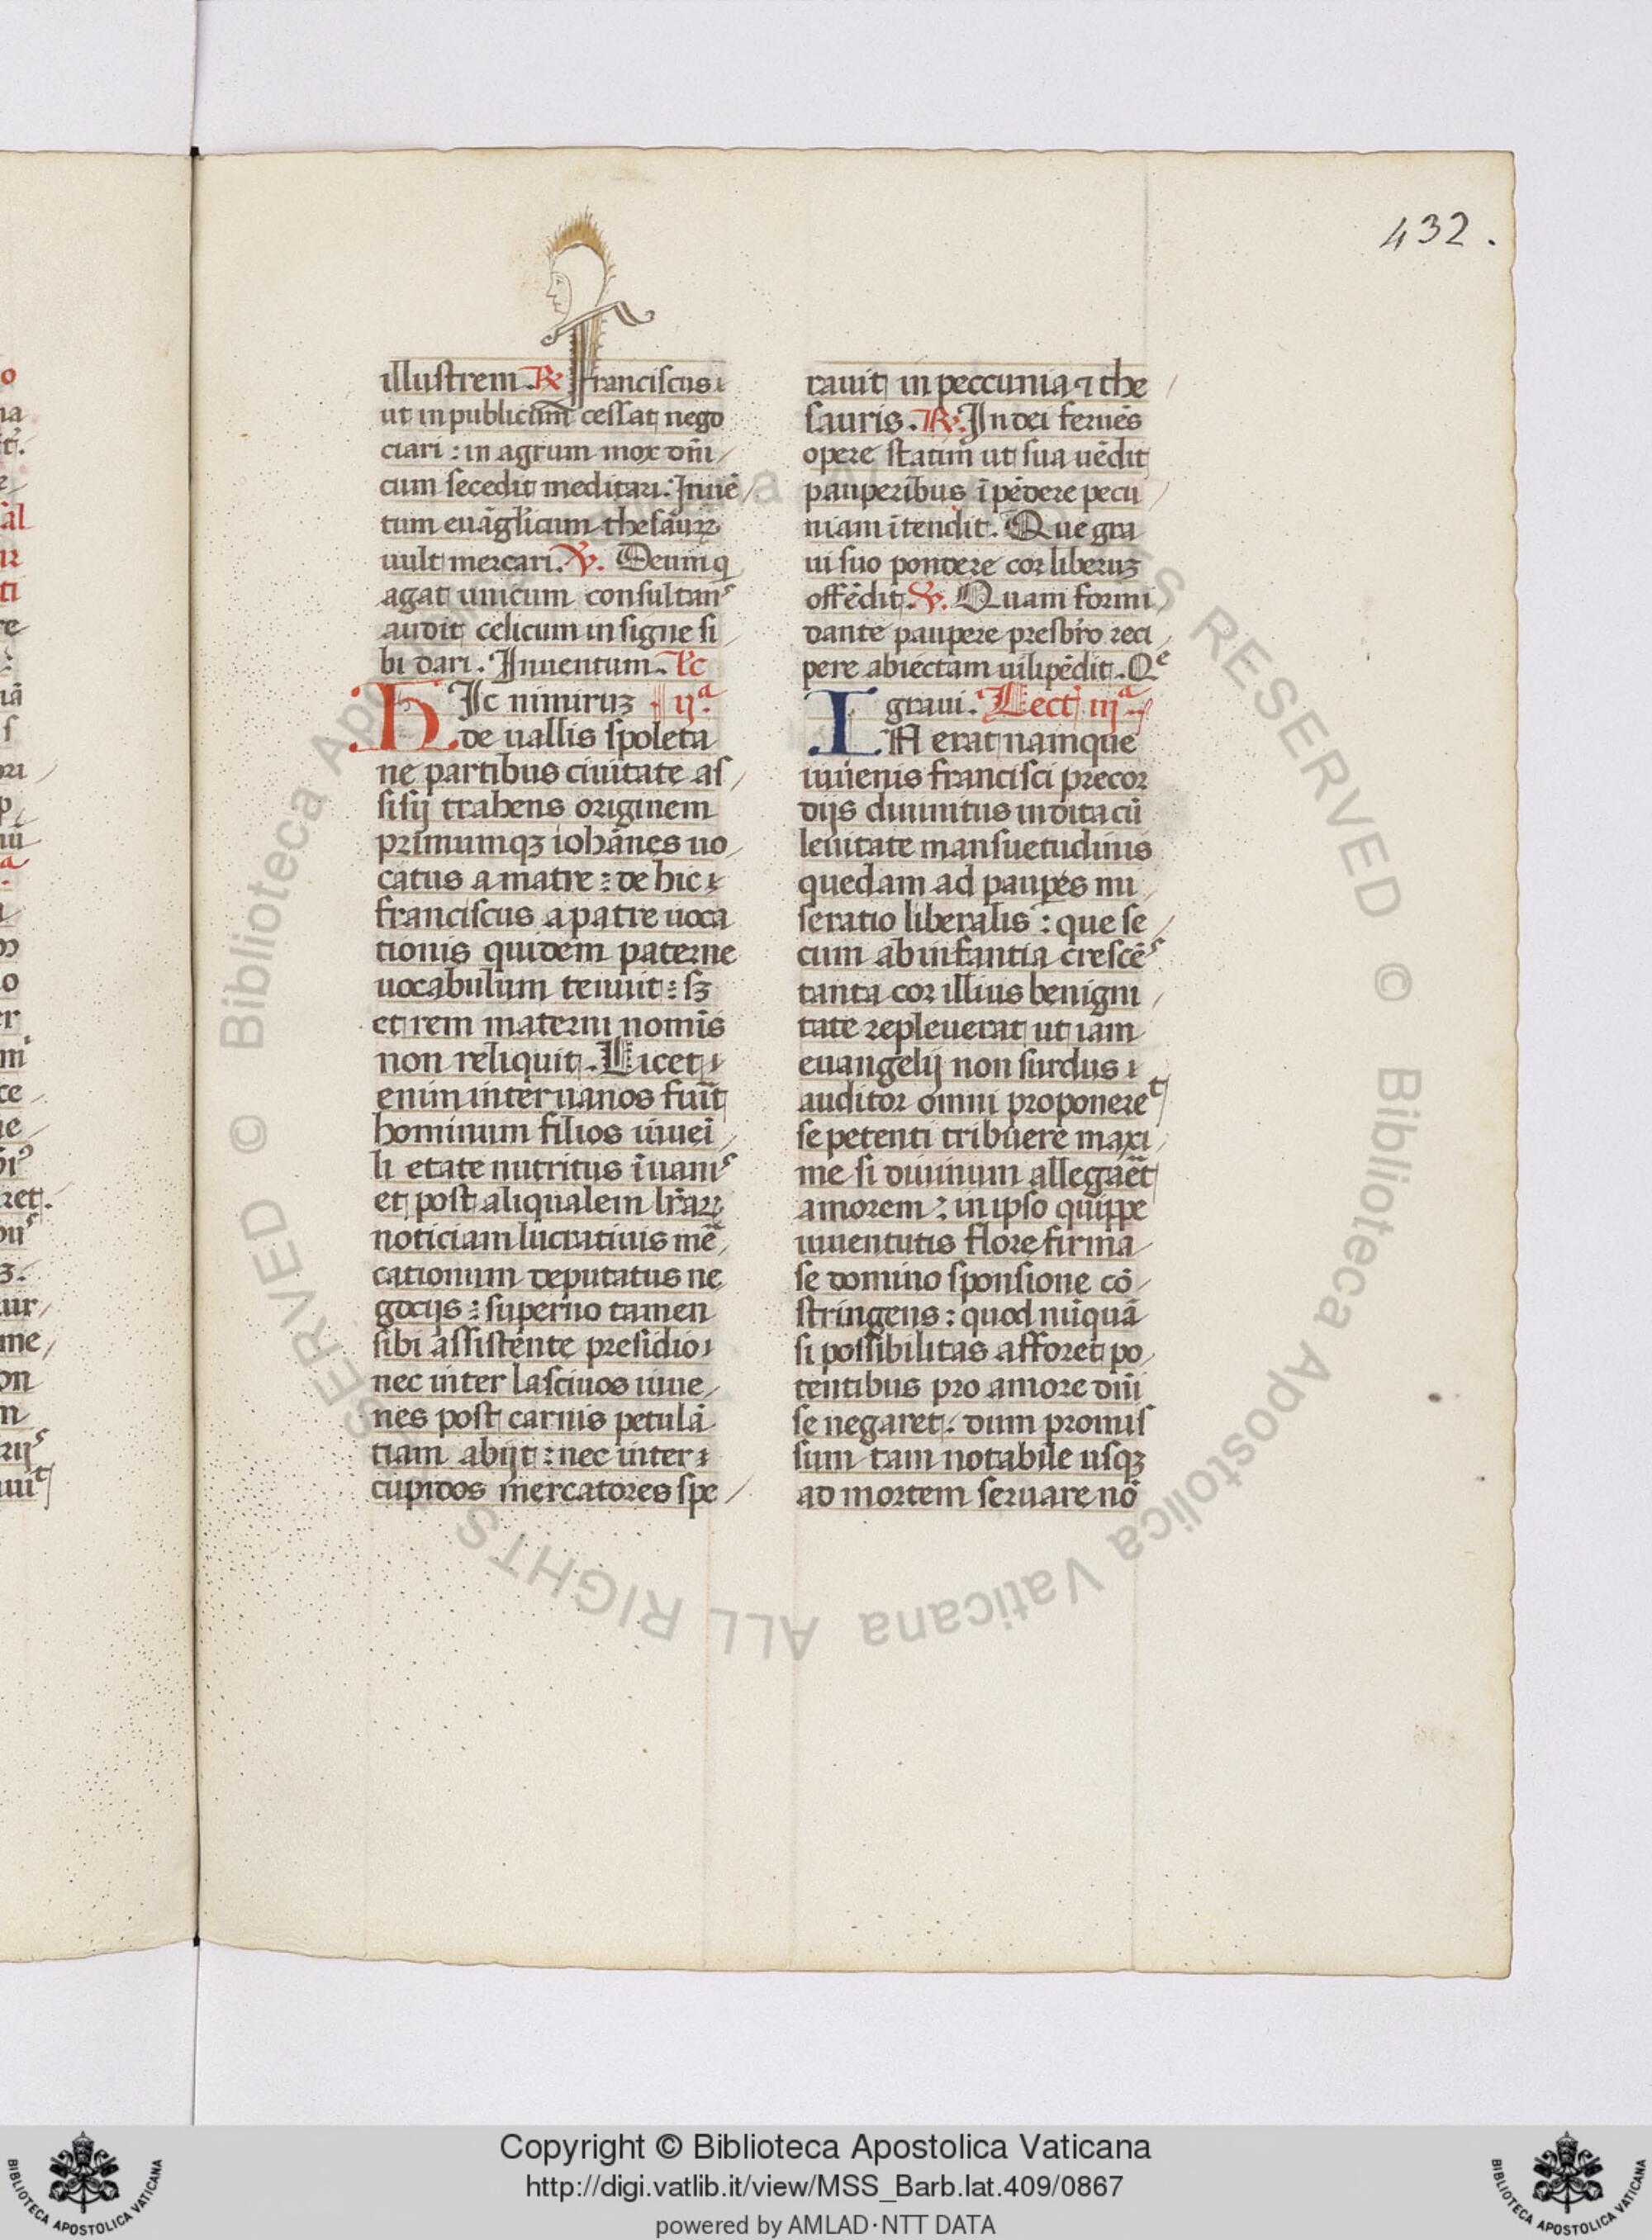 432.
illustrem. R. Franciscus
ut in publicum cessat nego
ciari: in agrum mox dnī
cum secedit meditari. Inuē
tum euāglicum thesāurꝝ
uult mercari. V. Deum q
agat unicum consultans
audit celicum insigne si
bi dari. Inuentum. Lc
HIc nimiruꝫ ijᵃ.
de uallis spoleta
ne partibus ciuitate as
sisij trahens originem
primumqꝫ iohānes uo
catus a matre: de hic
franciscus a patre uoca
tionis quidem paterne
uocabulum tenuit: sꝫ
et rem materni nomīs
non reliquit. Licet
enim inter uanos fuīt
hominum filios iuuei
li etate nutritus ī uanis
et post aliqualem lr̄aꝝ
noticiam lucratiuis mē
cationum deputatus ne
gocijs: superno tamen
sibi assistente presidio
nec inter lasciuos iuue
nes post carnis petulā
tiam abijt: nec inter
cupidos mercatores spe
rauit in peccunia ⁊ the
sauris. R. In dei feruēs
opere statim ut sua uēdit
pauperibus īpēdere pecu
niam ītendit. Que gra
ui suo pondere cor liberuꝫ
offēdit. V. Quam formi
dante paupere presbr̄o reci
pere abiectam uilipēdit. Qᵉ
graui. Lect iijᵃ
IA erat namque
iuuenis francisci precor
dijs diuinitus indita cū
leuitate mansuetudinis
quedam ad pauꝑes mi
seratio liberalis: que se
cum ab infantia crescēs
tanta cor illius benigni
tate repleuerat ut iam
euangelij non surdus
auditor omni proponeret
se petenti tribuere maxi
me si diuinum allegaēt
amorem: in ipso quippe
iuuentutis flore firma
se domino sponsione cō
stringens: quod nūquā
si possibilitas afforet po
tentibus pro amore dnī
se negaret. dum promis
sum tam notabile usqꝫ
ad mortem seruare nō
© Biblioteca Apostolica Vaticana ALL RIGHTS RESERVED © Biblioteca Apostolica Vaticana ALL RIGHTS RESERVED
Copyright © Biblioteca Apostolica Vaticana
http://digi.vatlib.it/view/MSS_Barb.lat.409/0867
powered by AMLAD·NTT DATA
BIBLIOTECA APOSTOLICA VATICANA
BIBLIOTECA APOSTOLICA VATICANA